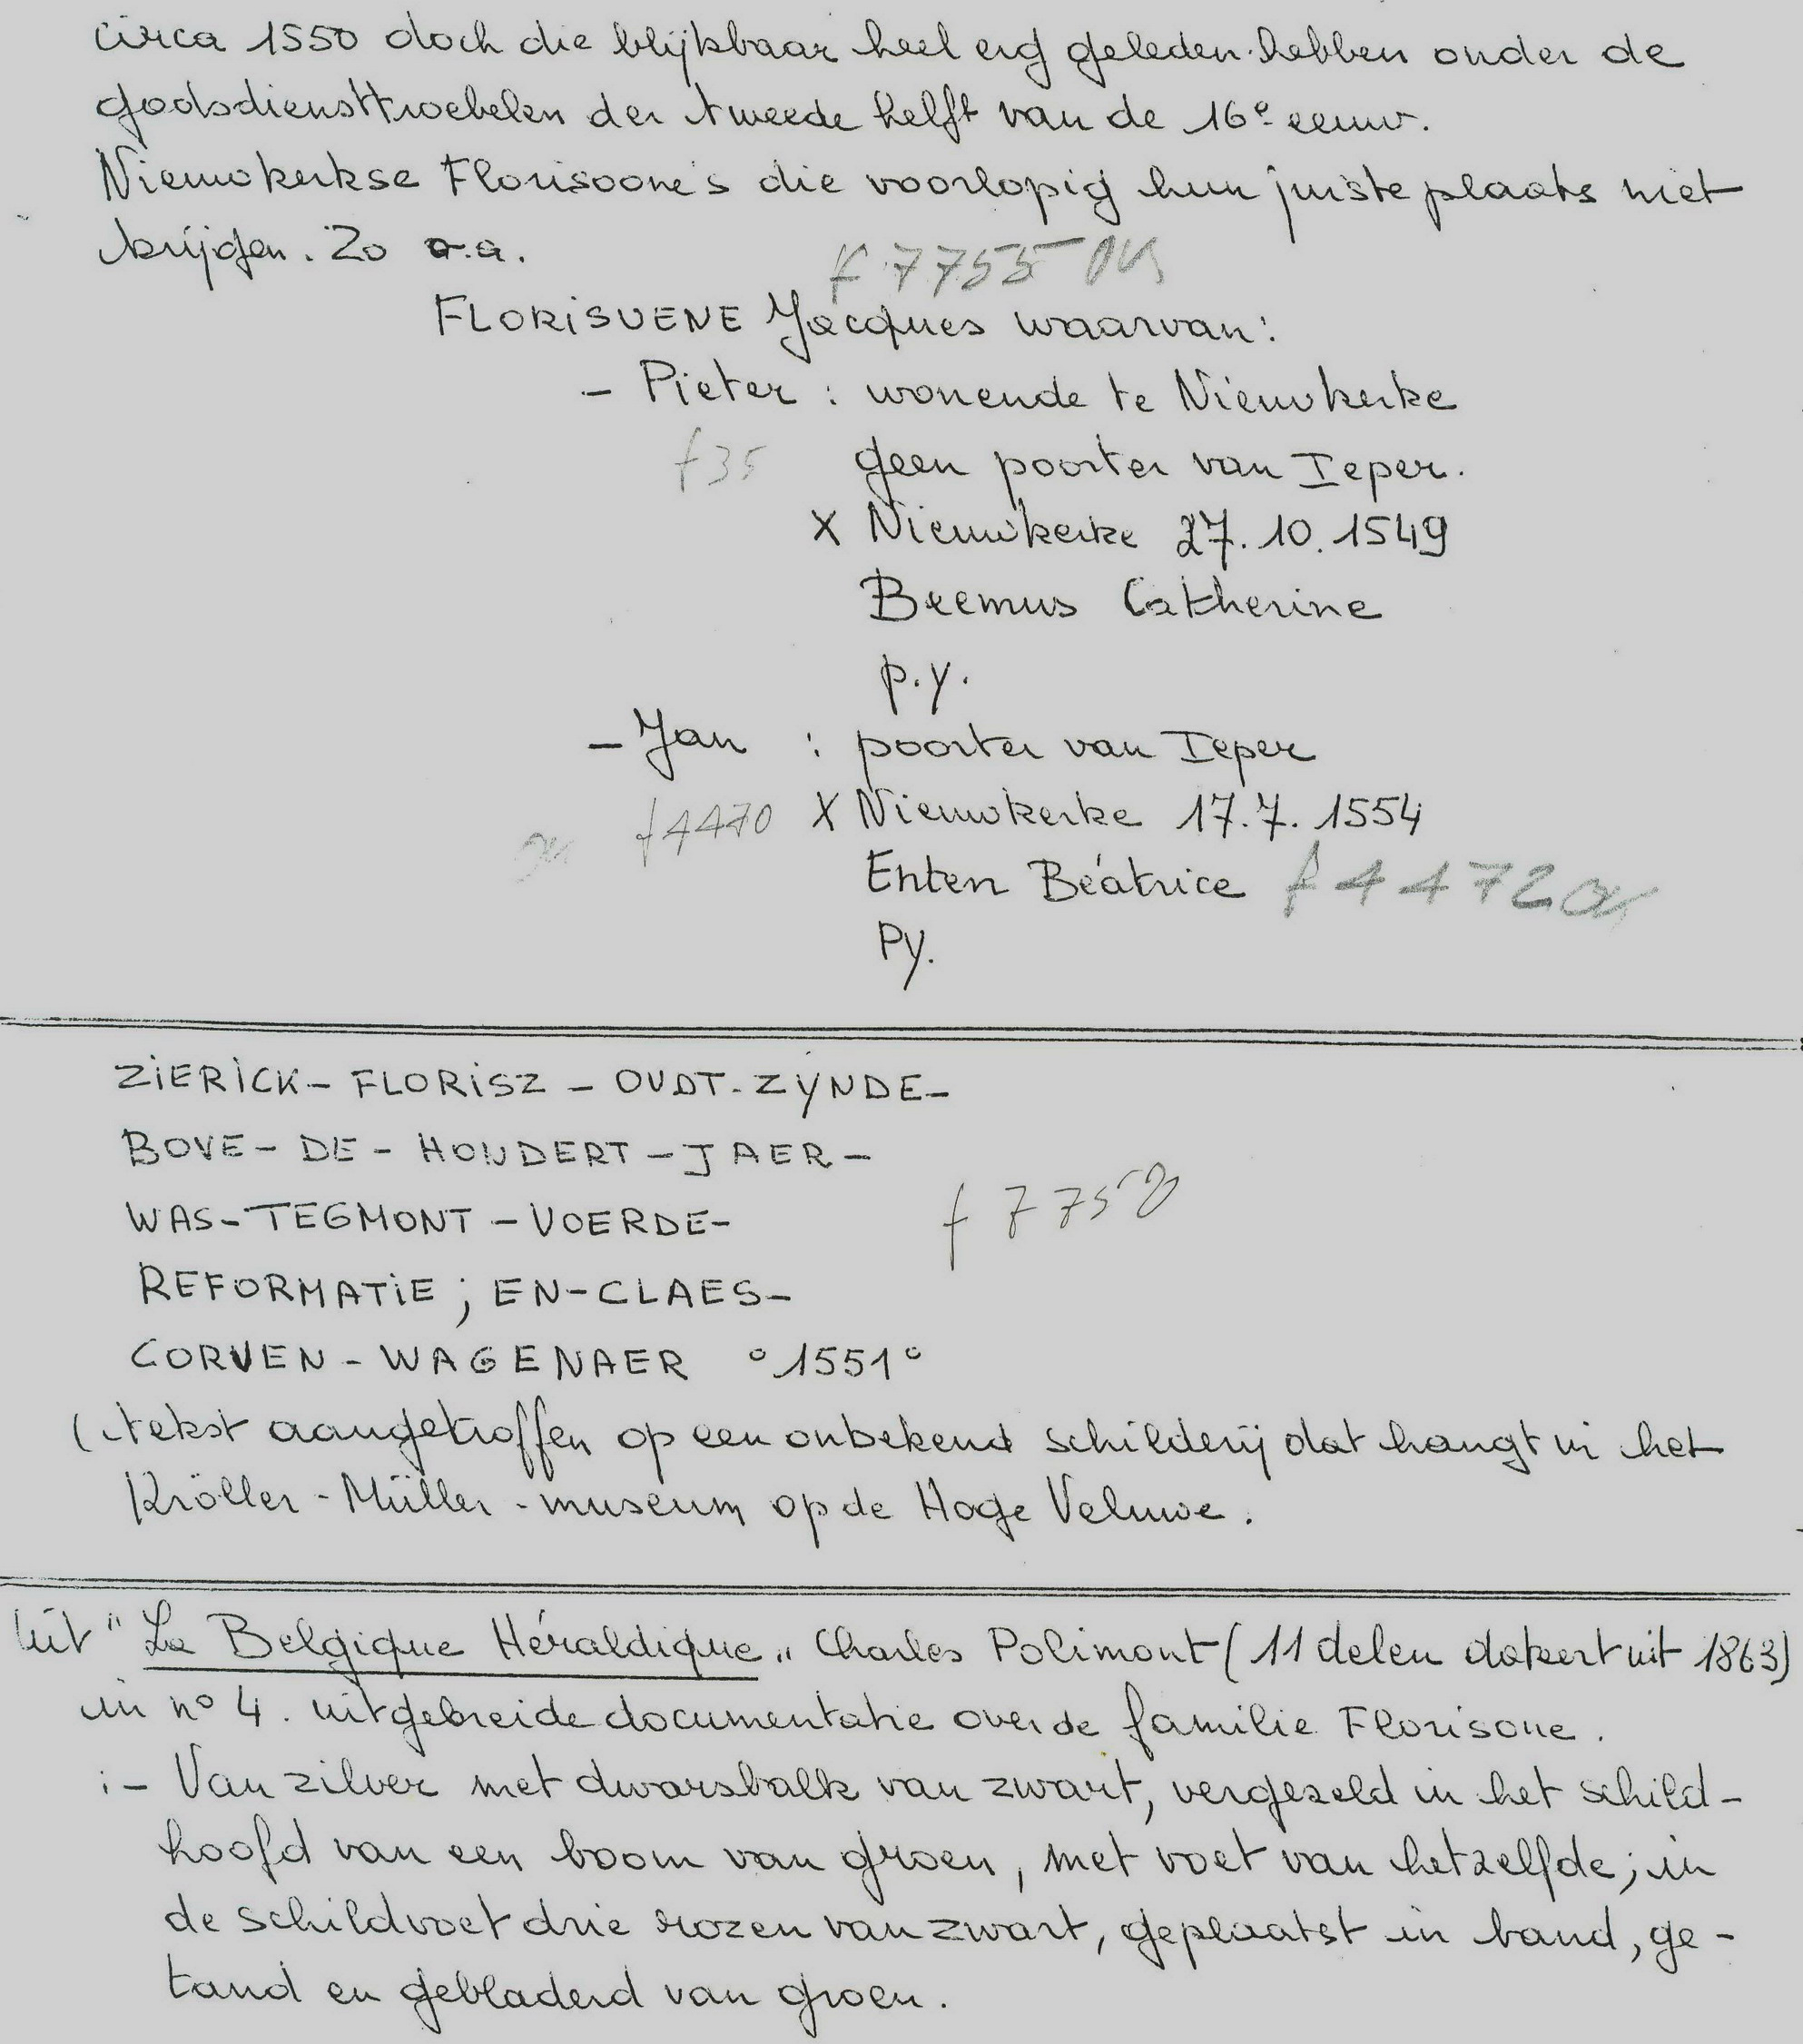 circa 1550 doch die blijkbaar heel erg geleden hebben onder de
godsdiensttroebelen der tweede helft van de 16e eeuw.
Nieuwkerkse Florisoone's die voorlopig hun juiste plaats niet
krijgen. Zo o.a.
f 7755 OK
FLORISUENE Jacques waarvan:
- Pieter : wonende te Nieuwkerke
f35 geen poorter van Ieper.
X Nieuwkerke 27.10.1549
Beemus Catherine
p.y.
- Jan : poorter van Ieper
ok f4470 X Nieuwkerke 17.7.1554
Enten Béatrice f 4472 ok
Py.
ZIERICK- FLORISZ - OUDT-ZYNDE-
BOVE- DE - HONDERT - JAER -
WAS-TEGMONT - VOERDE-
f 7758
REFORMATIE ; EN-CLAES-
CORVEN - WAGENAER °1551°
(tekst aangetroffen op een onbekend schilderij dat hangt in het
Kröller-Müller-museum op de Hoge Veluwe.
Uit "La Belgique Héraldique„ Charles Polimont (11 delen datert uit 1863)
in n° 4. uitgebreide documentatie over de familie Florisone.
:- Van zilver met dwarsbalk van zwart, vergezeld in het schild-
hoofd van een boom van groen, met voet van hetzelfde; in
de schildvoet drie rozen van zwart, geplaatst in band, ge-
tand en gebladerd van groen.